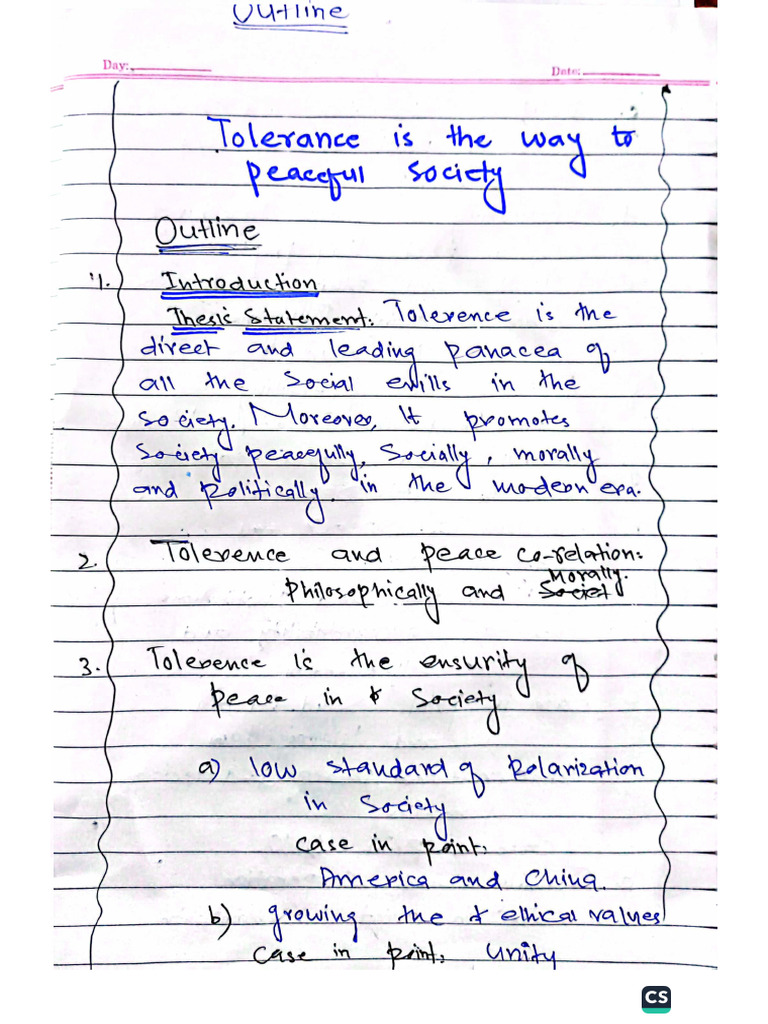 Outline
Day: Date:
Tolerance is the way to
peaceful society
Outline
1. Introduction
Thesis Statement: Tolerence is the
direct and leading panacea of
all the social evills in the
society. Moreover, It promotes
society peacefully, socially, morally
and politically in the modern era.
2. Tolerence and peace co-relation:
Morally.
Philosophically and Societ
3. Tolerence is the ensurity of
peace in society
a) low standard of polarization
in society
case in point:
America and China.
b) growing the ethical values
case in point: unity
CS